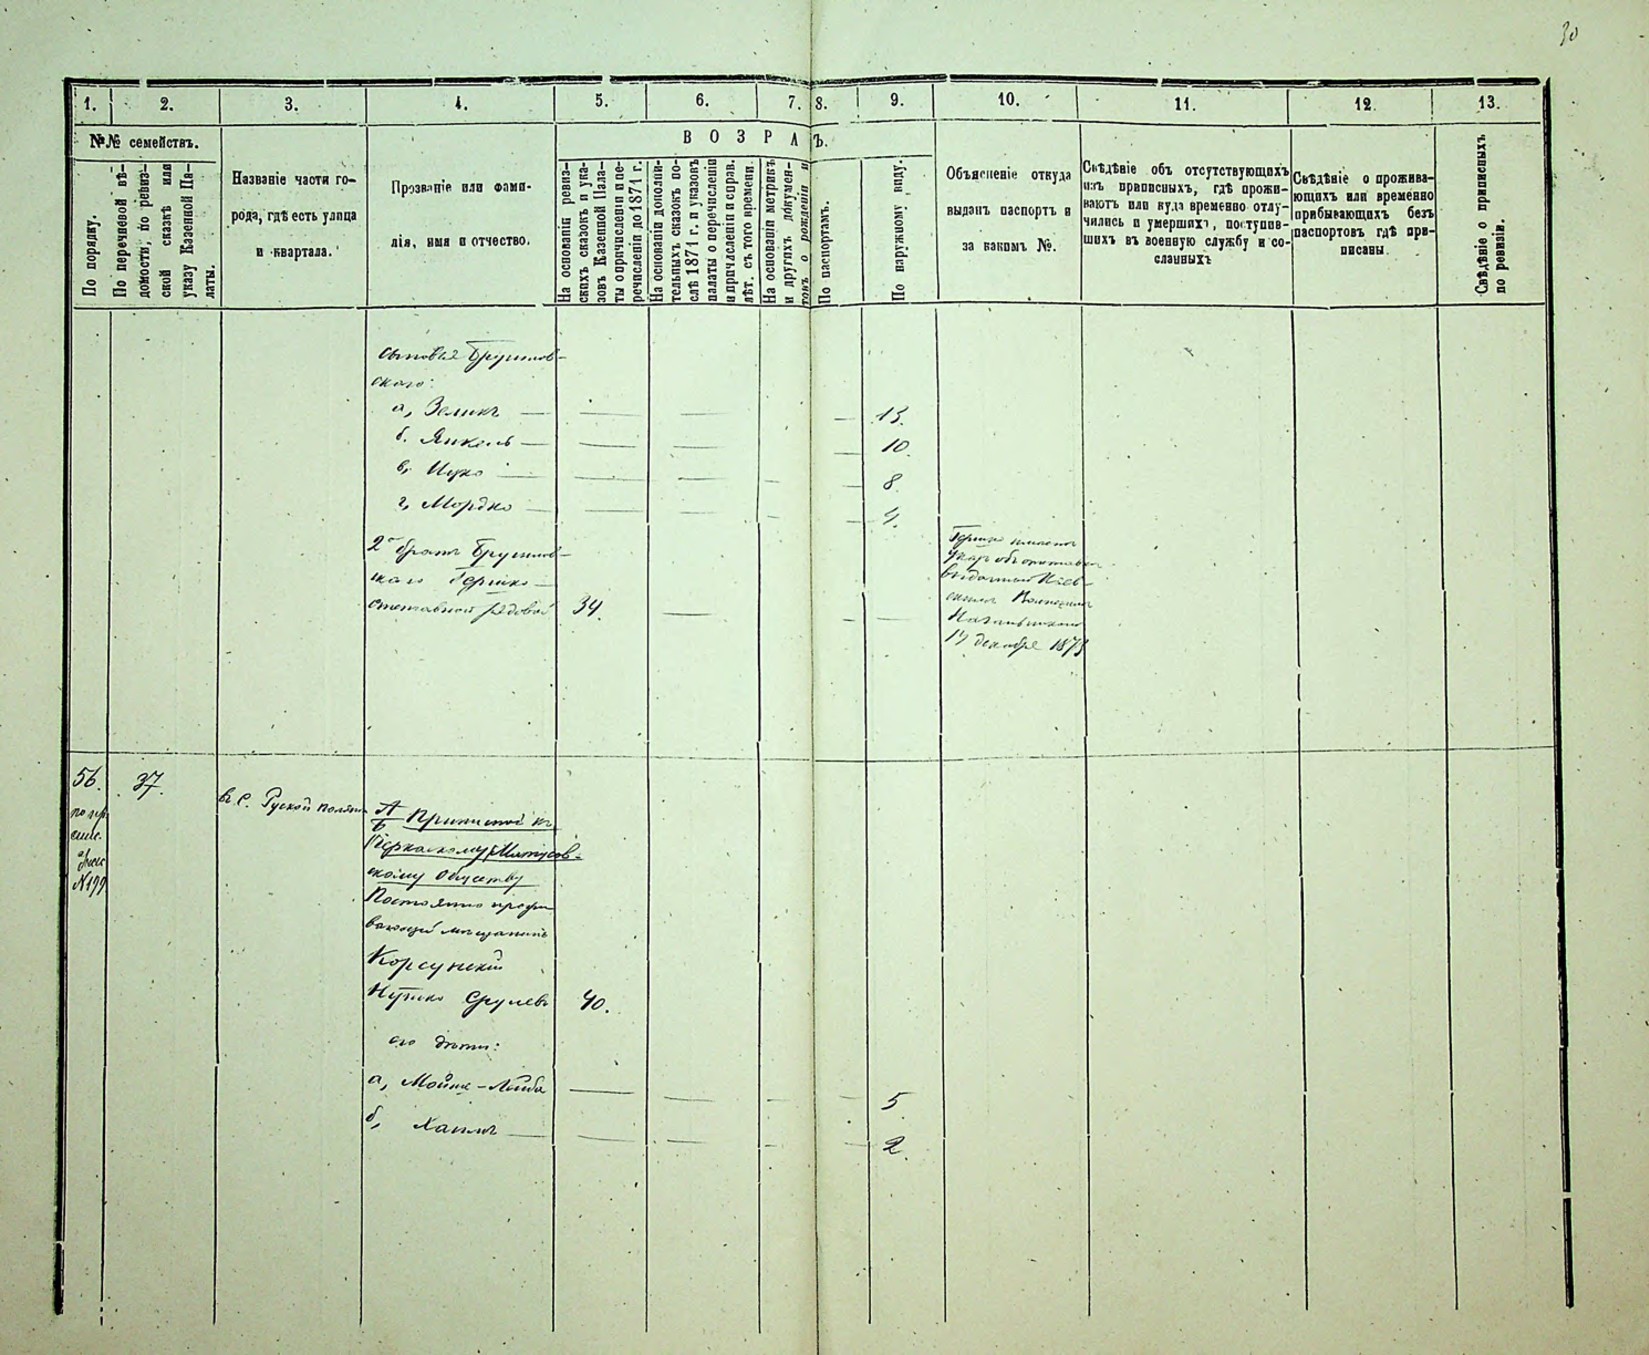 30
1. 2. 3. 4. 5. 6. 7. 8. 9. 10. 11. 12. 13.
№№ семействъ.
По порядку.
По перечневой вѣ-
домости, по ревиз-
ской сказкѣ или
указу Казенной Па-
латы.
Названіе части го-
рода, гдѣ есть улица
и квартала.
Прозваніе или фами-
лія, имя и отчество.
ВОЗРА Ъ.
На основаніи ревиз-
скихъ сказокъ и ука-
зовъ Казенной Пала-
ты о причисленіи и пе-
речисленіи до 1871 г.
На основаніи дополни-
тельныхъ сказокъ по-
слѣ 1871 г. и указовъ
палаты о перечисленіи
и причисленіи и справ.
лѣт. съ того времени.
На основаніи метрикъ
и другихъ докумен-
товъ о рожденіи и
По паспортамъ.
По наружному виду.
Объясненіе откуда
выданъ паспортъ и
за какимъ №.
Свѣдѣніе объ отсутствующихъ
изъ приписныхъ, гдѣ прожи-
ваютъ или куда временно отлу-
чились и умершихъ, поступив-
шихъ въ военную службу и со-
сланныхъ
Свѣдѣніе о прожива-
ющихъ или временно
прибывающихъ безъ
паспортовъ гдѣ при-
писаны.
Свѣдѣніе о приписныхъ
по ревизіи.
сыновья Брушлов-
скаго:
а, Зеликъ — 13.
б. Янкель — 10.
в, Ицко — 8.
г, Мордко — 4.
2й братъ Брушлов-
скаго Гершко —
отставной рядовой 34.
Гершко имѣетъ
указъ объ отставкѣ
выданный Кіев-
скимъ Воинскимъ
Начальникомъ
17 декабря 1873
56. 37.
въ С. Руской Полянѣ
№ 199
А/б Приписной къ
Черкаскому Мятусов-
скому Обществу
Постоянно прожи-
вающій мѣщанинъ
Корсунскій
Нутко Срулевъ 40.
его дѣти:
а, Мойше-Лейба 5.
б, Хаимъ — 2.